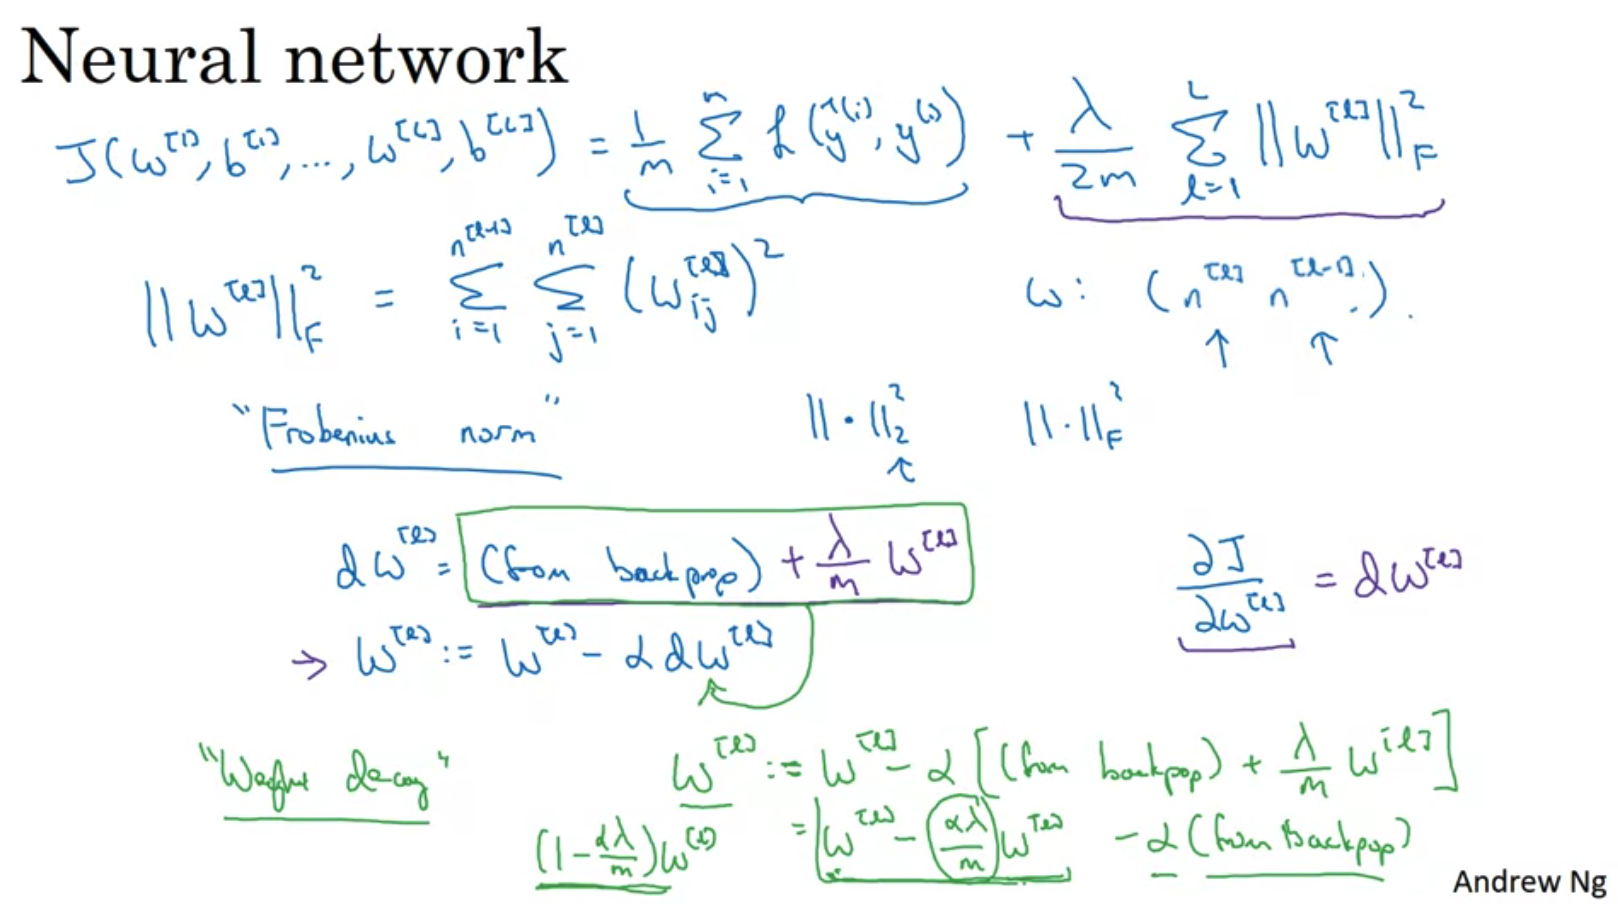 Neural network
J(w^[1], b^[1], ..., w^[L], b^[L]) = 1/m ∑_{i=1}^{n} L(ŷ^(i), y^(i)) + λ/2m ∑_{l=1}^{L} ||w^[l]||_F^2
||w^[l]||_F^2 = ∑_{i=1}^{n^[l-1]} ∑_{j=1}^{n^[l]} (w_ij^[l])^2 w: (n^[l] n^[l-1]).
↑ ↑
"Frobenius norm" ||·||_2^2 ||·||_F^2
↑
dw^[l] = (from backprop) + λ/m w^[l] ∂J/∂w^[l] = dw^[l]
→ w^[l] := w^[l] - α dw^[l]
"Weight decay" w^[l] := w^[l] - α [(from backpop) + λ/m w^[l]]
(1 - αλ/m) w^[l] = w^[l] - αλ/m w^[l] - α (from backpop)
Andrew Ng